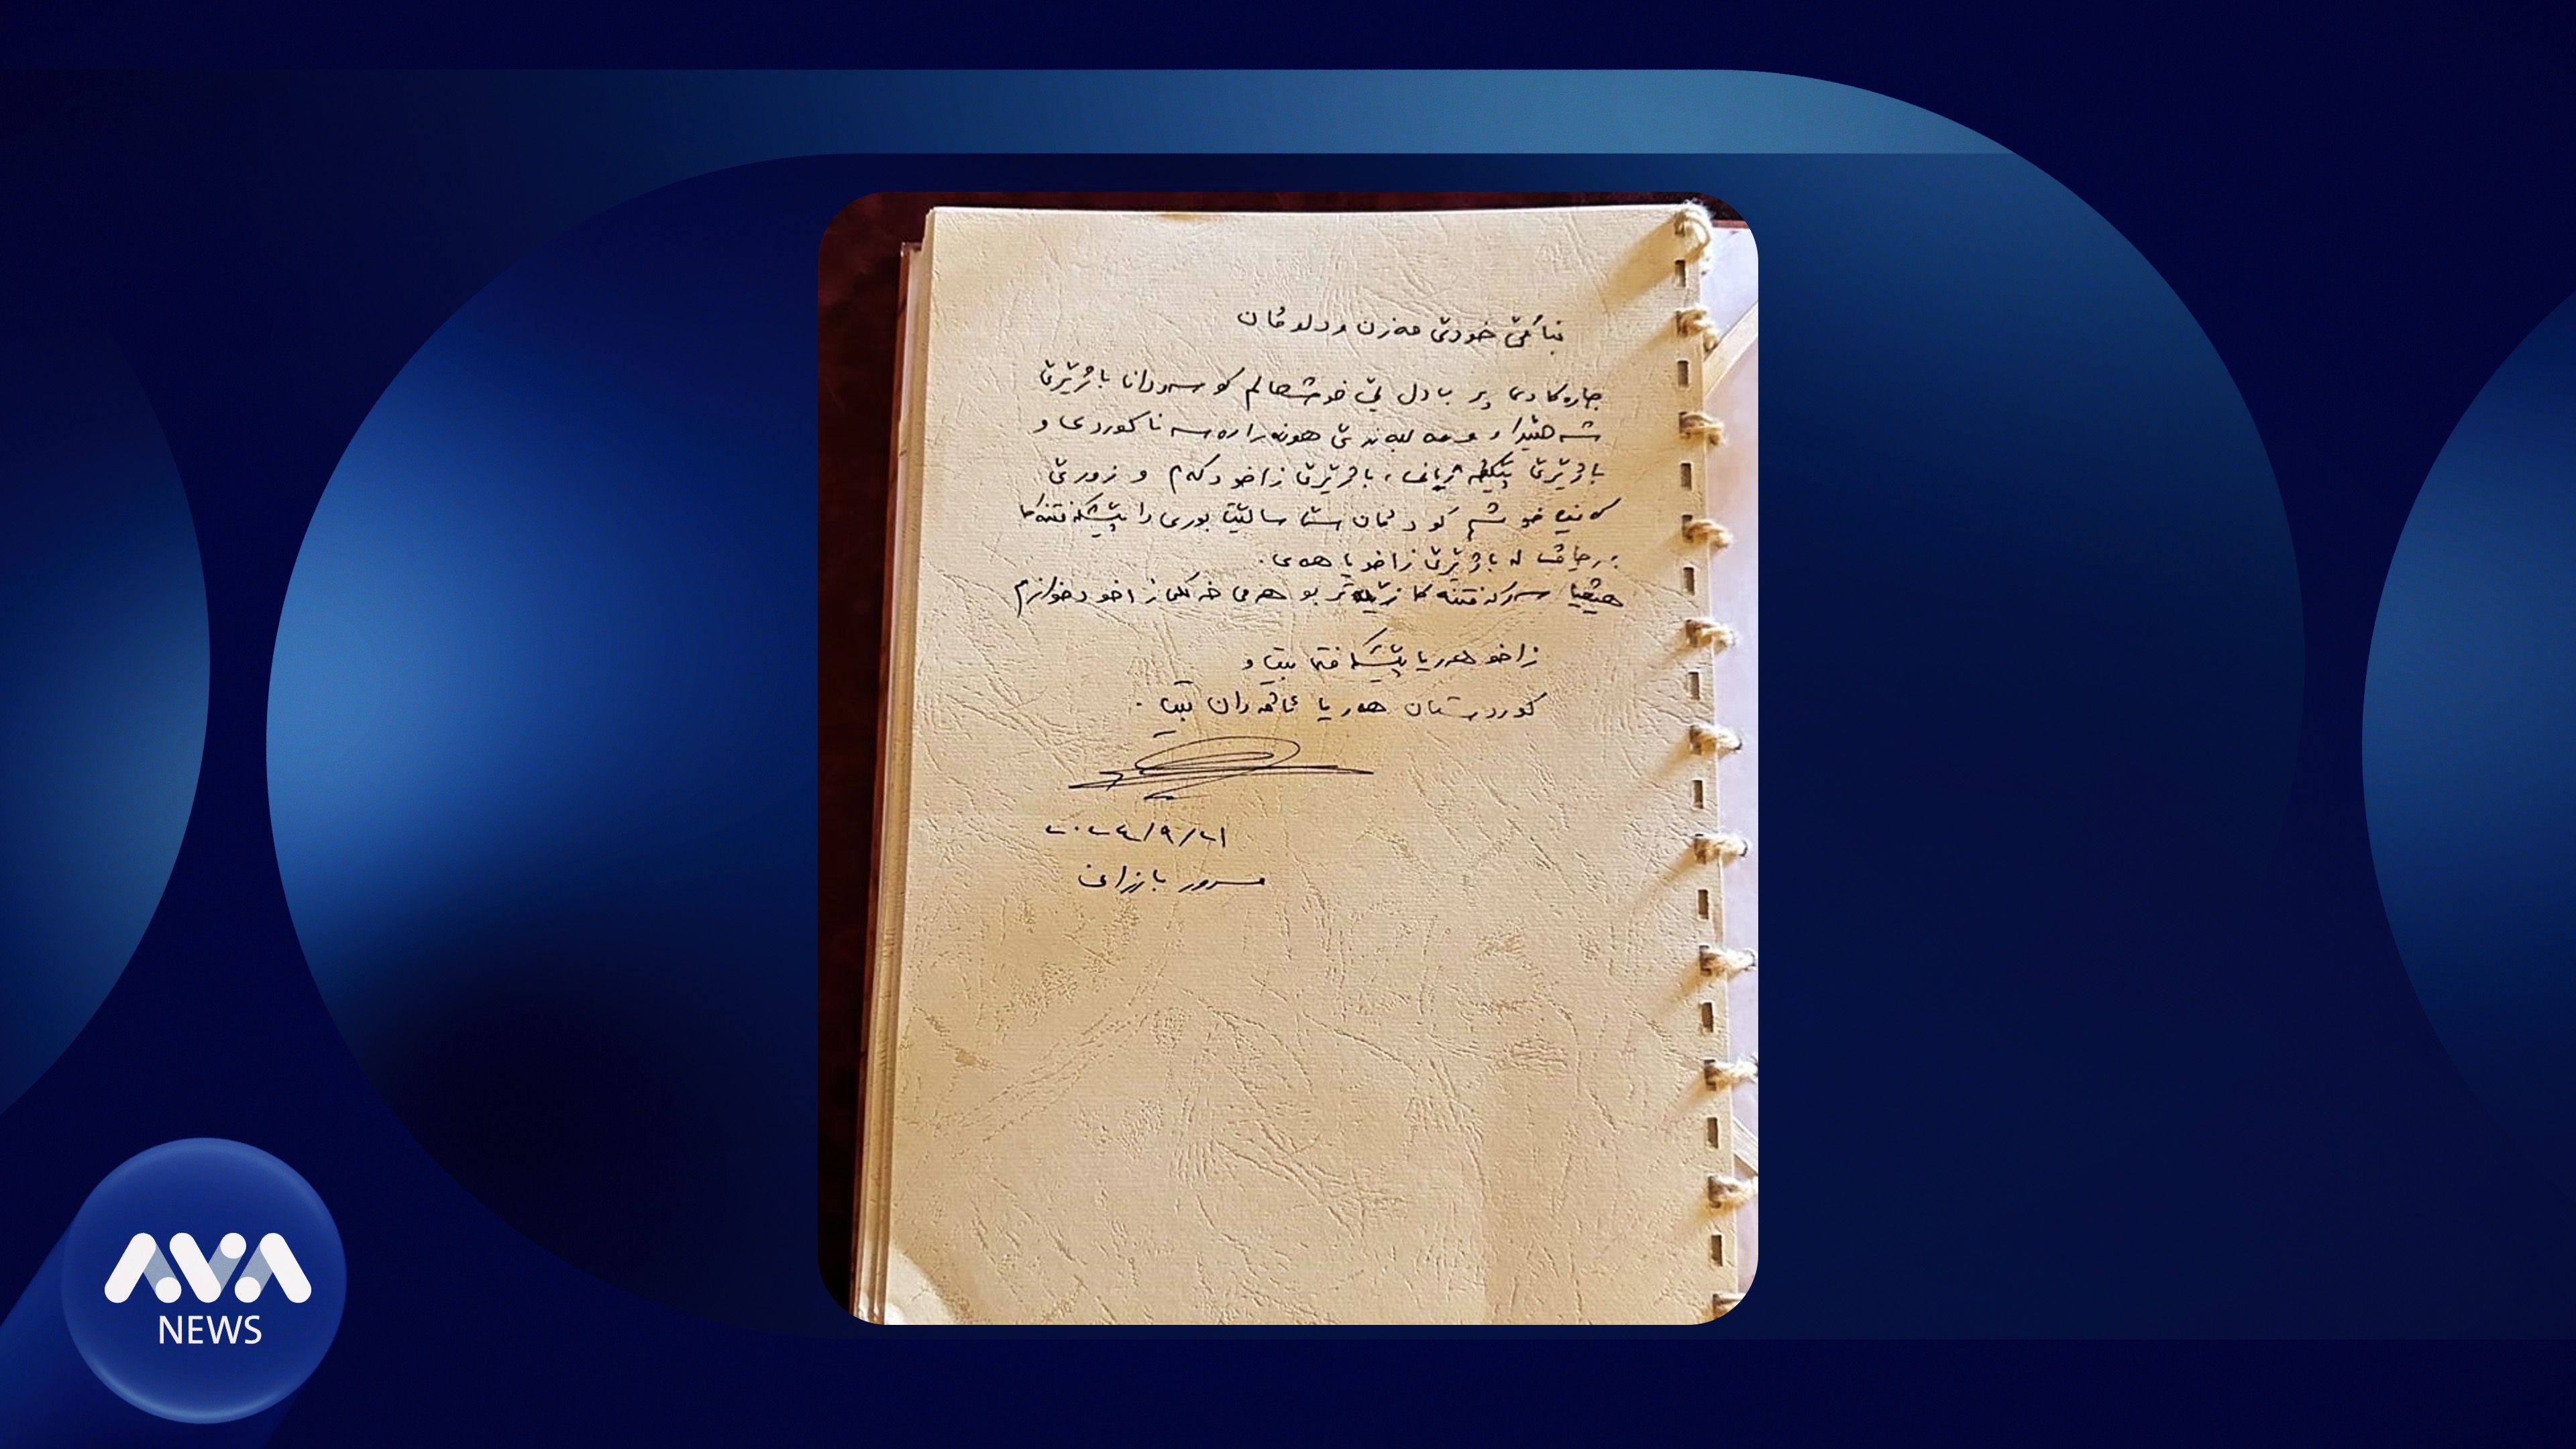 بنافێ خودێ مەزن و دلوڤان
جارەکا دی پر ب دل یێ خوشحالم کو سەردانا باژێرێ
شەهیدا و مەلبەندێ هونەر و رەسەنا کوردی و
باژێرێ پێکڤەژیانێ، باژێرێ زاخو دکەم و زورێ
کەیف خوشم کو د ڤان سێ سالێت بوری دا پێشکەفتنەکا
بەرچاڤ ل باژێرێ زاخو یا هەی.
هیڤیا سەرکەفتنەکا زێدەتر بو هەمی خەلکێ زاخو دخوازم
زاخو هەر یا پێشکەفتی بیت و
کوردستان هەر یا ئاڤەدان بیت.
٢٠٢٤/٩/٢١
مسرور بارزانی
AVA
NEWS